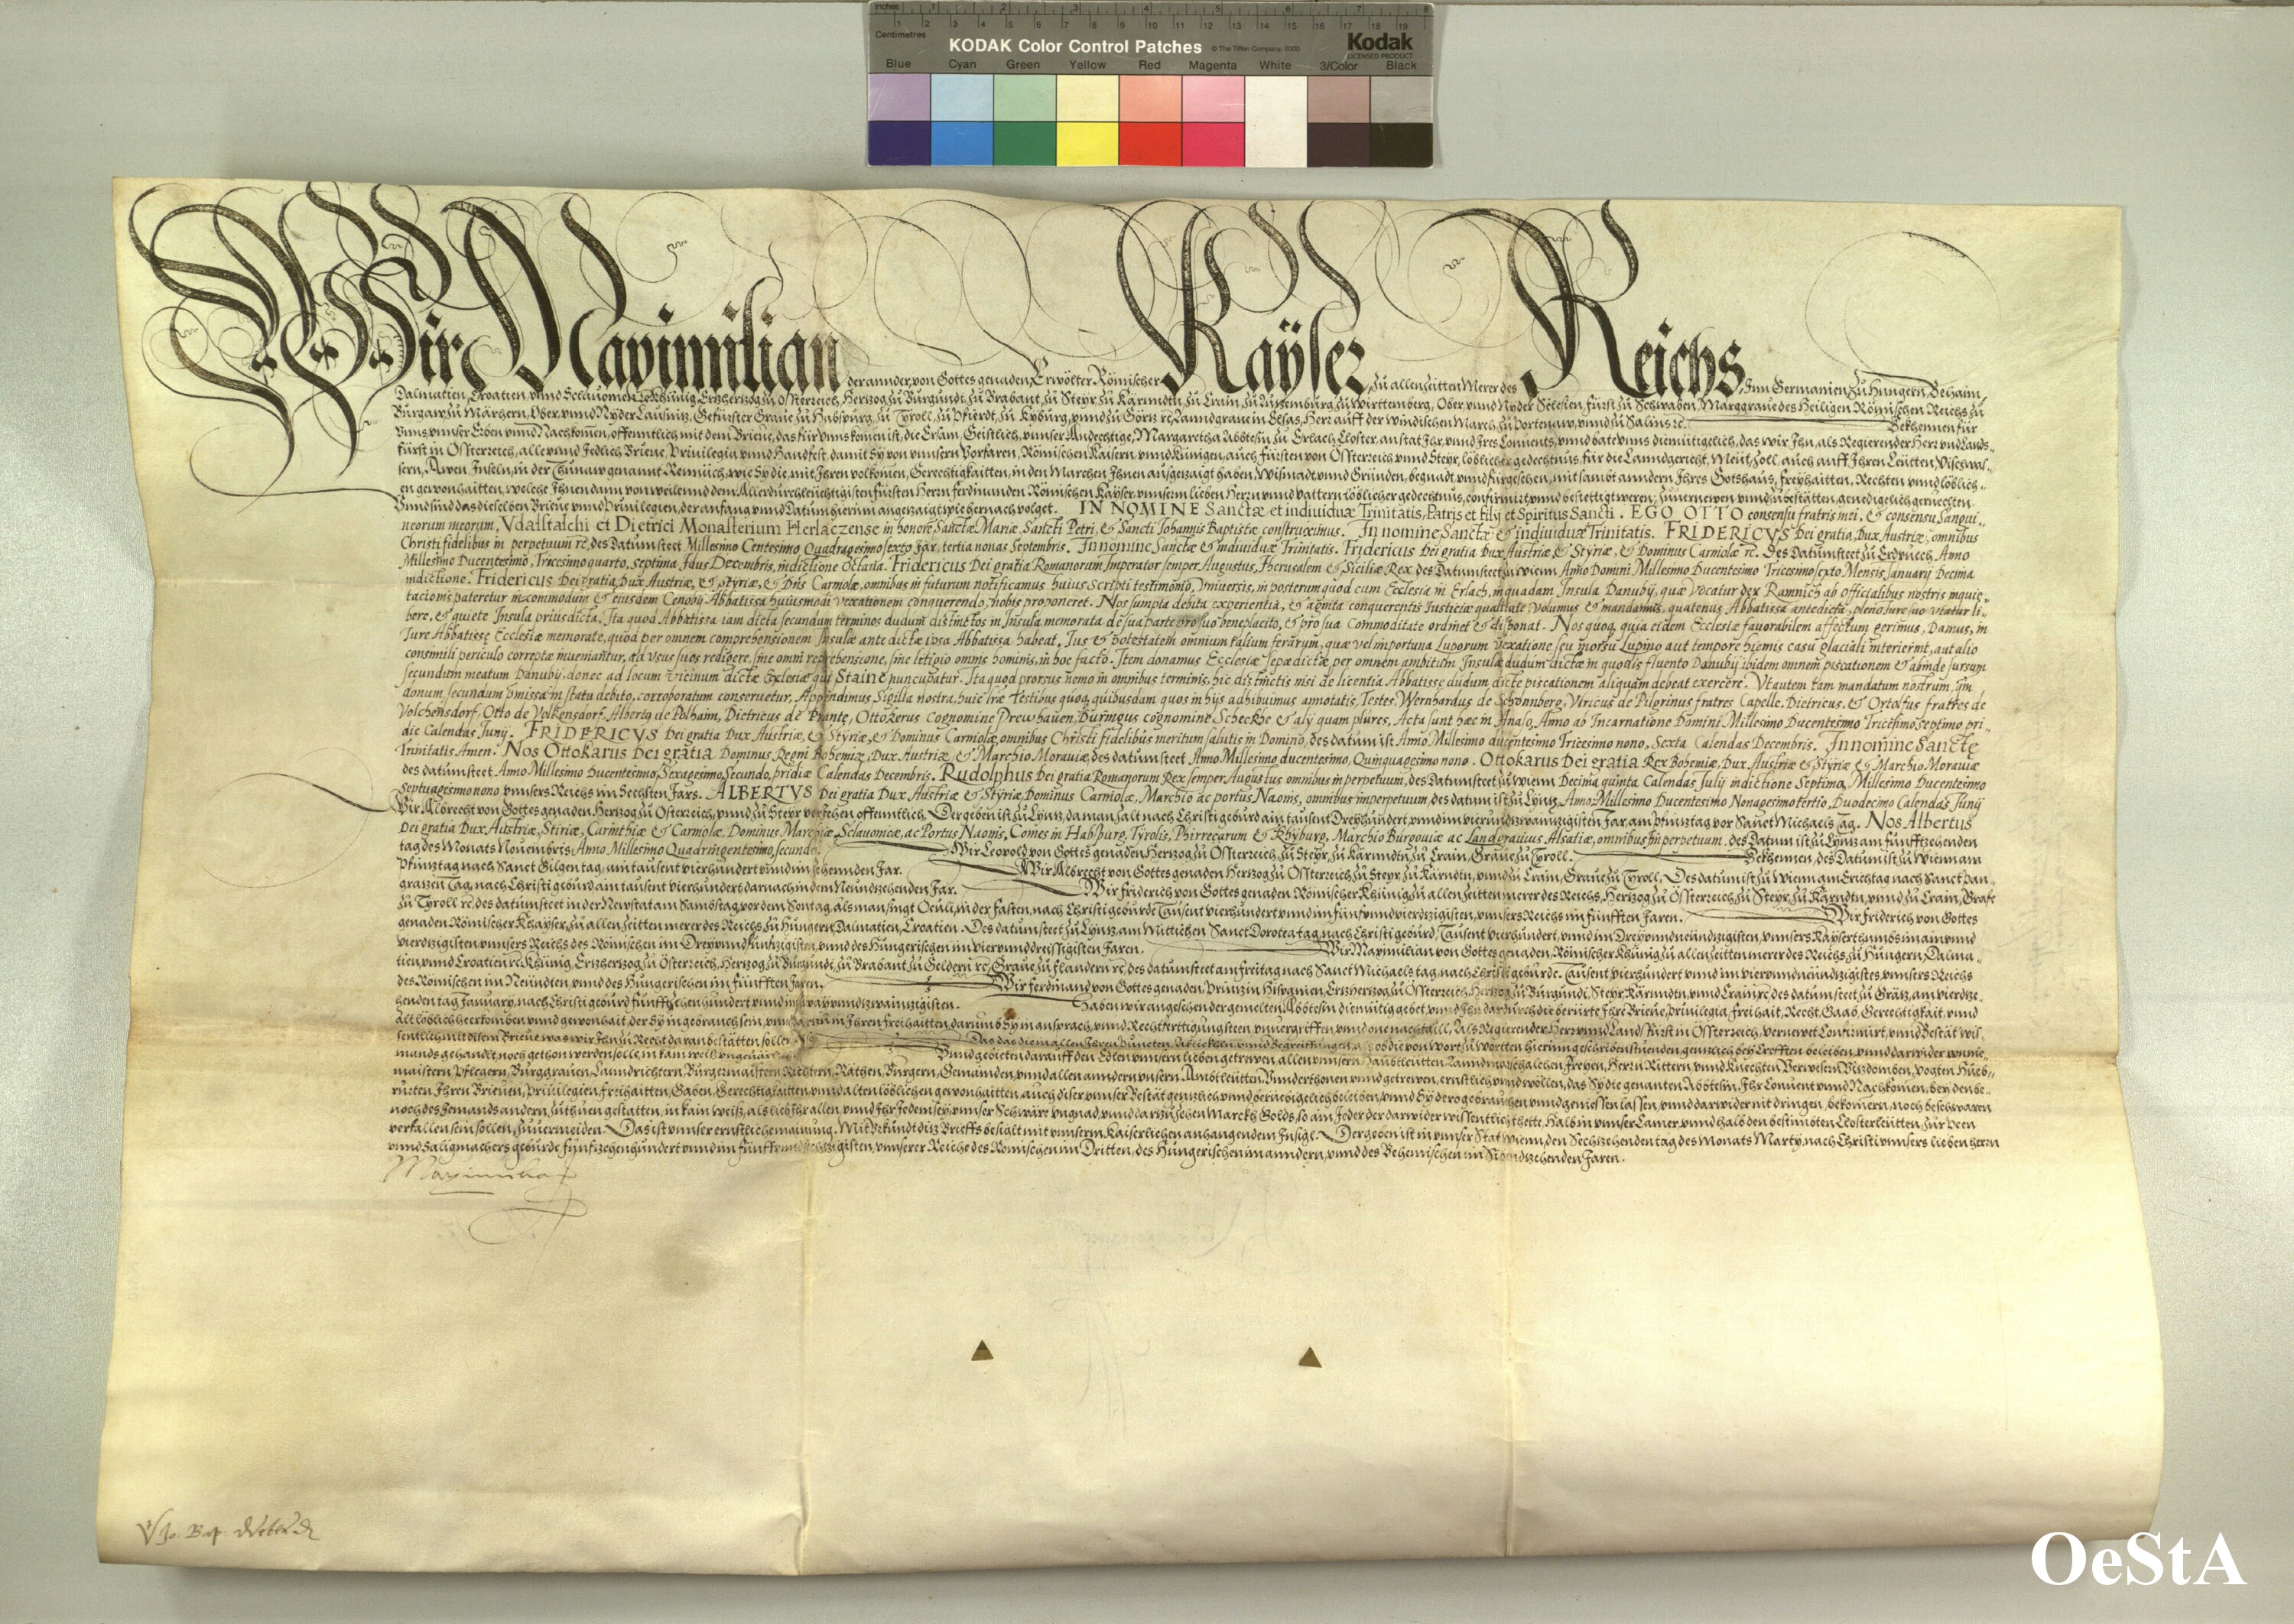 Inches 1 2 3 4 5 6 7 8
Centimetres 1 2 3 4 5 6 7 8 9 10 11 12 13 14 15 16 17 18 19
KODAK Color Control Patches © The Tiffen Company, 2000 Kodak
LICENSED PRODUCT
Blue Cyan Green Yellow Red Magenta White 3/Color Black
Wir Maximilian der annder, von Gottes genaden, Erwölter Römischer Kaÿser, zu allen Zeitten Merer des Reichs, Inn Germanien, zu Hungern, Behaim,
Dalmatien, Croatien, vnnd Sclauonien, Khünig, Ertzhertzog zu Österreich, Hertzog zu Burgundi, zu Brabant, zu Steyr, zu Kärnndtn, zu Crain, zu Lützemburg, zu Württemberg, Ober, vnnd Nyder Schlesien, Fürst zu Schwaben, Marggraue des Heiligen Römischen Reichs zu
Burgaw, zu Märhern, Ober, vnnd Nyder Lausnitz, Gefürster Graue zu Habspurg, zu Tyroll, zu Pfierdt, zu Kyburg, vnnd zu Görtz rc. Lanndgraue in Elsas, Herr auff der windischen March, zu Portenaw, vnnd zu Salins rc. Bekhennen für
vnns, vnnser Erben vnnd Nachkomen, offenntlich mit dem Brieue, das für vnns komen ist, die Ersam, Geistlich, vnnser Andechtige, Margaretha Äbtesin zu Erlach Closter, anstat Ihr, vnnd Ires Conuents, vnnd bate vnns diemütigelich, das wir Ihn, als Regierender Herr vnd Lannds-
fürst in Österreich, alle vnnd Jedlich Brieue, Priuilegia vnnd Handtfest, damit Sy von vnnsern Vorfaren, Römischen Kaisern vnnd Künigen, auch Fürsten von Österreich vnnd Steyr, löblicher gedechtnus, für die Lanndgericht, Meüt, Zoll, auch auff Ihren Leütten, Vischwas-
sern, Awen, Inseln, in der Thunaw genannt Rennich, wie Sy die, mit Ihren volkomen, Gerechtigkaitten, in den Marchen Ihnen ausgezaigt haben, Wismadt vnnd Gründen, begnadt vnnd fürgesehen, mit sambt anndern Ihres Gotshaus, Freyhaitten, Rechten vnnd löblich-
en gewonhaitten, welche Ihnen dann von weilennd dem Allerdurchleüchtigisten Fürsten Herrn Ferdinanden Römischen Kayser, vnnserm lieben Herrn vnnd vattern löblicher gedechtnus, confirmirt vnnd bestettigt weren, zuuernewen vnnd zubestätten, genedigelich geruechten.
Vnnd sind das dieselben Brieue vnnd Priuilegien, der anfang vnnd Datum hierinn angezaigt, wie hernach volget. IN NOMINE Sanctæ et indiuiduæ Trinitatis, Patris et Filij et Spiritus Sancti. EGO OTTO consensu fratris mei, & consensu sangui-
neorum meorum, Vdalstalchi et Dietrici Monasterium Herlaczense in honore Sanctæ Mariæ, Sancti Petri, & Sancti Iohannis Baptistæ construximus. In nomine Sanctæ & indiuiduæ Trinitatis. FRIDERICVS Dei gratia, Dux Austriæ, omnibus
Christi fidelibus in perpetuum rc, des Datum steet Millesimo Centesimo Quadragesimo sexto Jar, tertia nonas Septembris. In nomine Sanctæ & indiuiduæ Trinitatis. Fridericus Dei gratia Dux Austriæ, & Styriæ, & Dominus Carniolæ rc. Des Datum steet zu Erdpurch, Anno
Millesimo Ducentesimo, Tricesimo quarto, septima Idus Decembris, indictione octaua. Fridericus Dei gratia Romanorum Imperator semper Augustus, Iherusalem & Siciliæ Rex, des Datum steet zu wienn Anno Domini Millesimo Ducentesimo Tricesimo sexto Mensis Januarij Decima
indictione. Fridericus Dei gratia Dux Austriæ, & Styriæ, & Dns Carniolæ, omnibus in futurum notificamus huius scripti testimonio, Vniuersis, in posterum quod cum Ecclesia in Erlach, in quadam Insula Danubij, quæ Vocatur der Ramnich ab officialibus nostris inquie-
tacionis pateretur incommodum & eiusdem Cenobij Abbatissa huiusmodi vexationem conquerendo, nobis proponeret. Nos sumpta debita experientia, & agnita conquerentis Iusticiæ qualitate Volumus & mandamus, quatenus Abbatissa antedicta, pleno iure suo vtatur li-
bere, & quiete Insula prius dicta. Ita quod Abbatissa iam dicta secundum terminos dudum distinctos in Insula memorata de sua parte pro suo beneplacito, & pro sua Commoditate ordinet & disponat. Nos quoq, quia eidem Ecclesiæ fauorabilem affectum gerimus, Damus, in
Iure Abbatisse Ecclesiæ memorate, quod per omnem comprehensionem Insulæ ante dictæ ipsa Abbatissa habeat, Ius & potestatem omnium talium ferarum, quæ vel importuna Luporum vexatione seu morsu Lupino aut tempore hiemis casu glaciali interierint, aut alio
consimili periculo correptæ inueniantur, ad vsus suos redigere, sine omni reprehensione, sine letigio omnis hominis, in hoc facto. Item donamus Ecclesiæ sepe dictæ, per omnem ambitum Insulæ dudum dictæ in quodis fluento Danubij ibidem omnem piscationem & abinde sursum
secundum meatum Danubij, donec ad locum vicinum dictæ Ecclesiæ qui Staine nuncupatur. Ita quod prorsus nemo in omnibus terminis, hic distinctis nisi de licentia Abbatisse dudum dicte piscationem aliquam debeat exercere. Vt autem tam mandatum nostrum, qm
donum, secundum pmissa in statu debito, corroporatum conseruetur, Appendimus Sigilla nostra, huic lræ Testibus quoq, quibusdam quos in hijs adhibuimus annotatis, Testes, Wernhardus de Schonnberg, Viricus de Pilgrinus fratres Capelle, Dietricus, & Ortolfus fratres de
Volchensdorf, Otto de Volkensdorf, Alberty de Polhaim, Dietricus de Prante, Ottokerus Cognomine Prewhauen, Duringus cognomine Scheckhe & alij quam plures, Acta sunt hæc in Anaso, Anno ab Incarnatione Domini Millesimo Ducentesimo Tricesimo septimo pri-
die Calendas Junij. FRIDERICVS Dei gratia Dux Austriæ, & Styriæ, & Dominus Carniolæ, omnibus Christi fidelibus meritum salutis in Domino, des datum ist Anno Millesimo ducentesimo Tricesimo nono, Sexta Calendas Decembris. In nomine Sancte
Trinitatis Amen. Nos Ottokarus Dei gratia Dominus Regni Bohemiæ, Dux Austriæ & Marchio Morauiæ, des datum steet Anno Millesimo ducentesimo, Quinquagesimo nono. Ottokarus Dei gratia Rex Bohemiæ, Dux Austriæ & Styriæ & Marchio Morauiæ
des datum steet Anno Millesimo Ducentesimo, Sexagesimo, Secundo, pridiæ Calendas Decembris. Rudolphus Dei gratia Romanorum Rex semper Augustus omnibus in perpetuum, des Datum steet zu Wienn Decima quinta Calendas Julij indictione Septima, Millesimo Ducentesimo
Septuagesimo nono vnnsers Reichs im Sechsten Jars. ALBERTVS Dei gratia Dux Austriæ & Styriæ, Dominus Carniolæ, Marchio ac portus Naonis, omnibus imperpetuum, des datum ist zu Lynntz, Anno Millesimo Ducentesimo Nonagesimo tertio, Duodecimo Calendas Junij
Wir Albrecht von Gottes genaden, Hertzog zu Österreich, vnnd zu Steyr verjehen offenntlich, Der geben ist zu Lynntz, da man zalt nach Christi gebürd ain tausent Dreyhundert, vnnd im vierundzwainzigisten Jar, am Pfintztag vor Sanct Michaels tag. Nos Albertus
Dei gratia Dux Austriæ, Stiriæ, Carinthiæ & Carniolæ, Dominus Marchiæ Sclauonicæ, ac Portus Naonis, Comes in Habspurg, Tyrolis, Phirretarum & Khyburg, Marchio Burgouiæ ac Landgrauius Alsatiæ, omnibus in perpetuum. des Datum ist zu Lyntz am fünfftzehenden
tag des Monats Nouembris, Anno Millesimo Quadringentesimo, secundo. Wir Leopold von Gottes genaden Hertzog zu Österreich, zu Steyr, zu Kärnndtn, zu Crain, Graue zu Tyroll. Bekhennen, des Datum ist zu Wienn am
Pfinztag nach Sanct Gilgen tag, ain tausent vierhundert vnnd im zehennden Jar. Wir Albrecht von Gottes genaden Hertzog zu Österreich, zu Steyr, zu Kärndtn, vnnd zu Crain, Graue zu Tyroll, Des datum ist zu Wienn am Erichtag nach Sanct Pan-
gratzen Tag, nach Christi gebürd ain tausent vierhundert darnach in dem Neündtzehenden Jar. Wir Friderich von Gottes genaden Römischer Khünig zu allen Zeitten merer des Reichs, Hertzog zu Österreich, zu Steyr, zu Kärndtn, vnnd zu Crain, Graf
zu Tyroll rc, des datum steet in der Newstat am Sambstag, vor dem Sontag, als man singt Oculi, in der Fasten, nach Christi gebürde Tausent vierhundert vnnd im fünfvnndvierdzigisten, vnnsers Reichs im fünfften Jaren. Wir Friderich von Gottes
genaden Römischer Khayser, zu allen Zeitten merer des Reichs, zu Hungern, Dalmatien, Croatien. Des datum steet zu Lynntz, am Mittichen Sanct Dorotea tag, nach Christi gebürd, Tausent vierhundert, vnnd im Dreyvnndneündzigisten, vnnsers Kayserthumbs im ainvnnd
vierdzigisten vnnsers Reichs des Römischen im Dreyvnndfünfzigisten, vnnd des Hungerischen im viervnnddreissigisten Jaren. Wir Maximilian von Gottes genaden, Römischer Khünig zu allen Zeitten merer des Reichs, zu Hungern, Dalma-
tien vnnd Croatien rc, Khünig, Ertzhertzog zu Österreich, Hertzog zu Burgundi, zu Brabant, zu Geldern rc, Graue zu Flandern rc, des datum steet am Freitag nach Sanct Michaels tag, nach Christi gebürde, Tausent vierhundert vnnd im viervnndneündzigisten vnnsers Reichs
des Römischen im Neündten, vnnd des Hungerischen im fünfften Jaren. Wir Ferdinand von Gottes genaden, Prinz in Hispanien, Ertzhertzog zu Österreich, Hertzog zu Burgundi, Steyr, Kärnndtn, vnnd Crain rc, des datum steet zu Grätz, am vierdtze-
henden tag January, nach Christi gebürd fünffzehenhundert vnnd im zwayvnndzwainzigisten. Haben wir angesehen der gemelten Äbbtesin diemüttig gebet, vnnd Ihn dardurch die berürte Ihre Brieue, Priuilegia, Freihait, Recht, Gaab, Gerechtigkait, vnnd
alt löblich heerkomben vnnd gewonhait, der Sy in gebrauch sein, in Ihren Freihaitten, darumb Sy in ansprach, vnnd Rechtfertigung steen, vnuergriffen, vnnd one nachtaill, Als Regierender Herr vnnd Lanndsfürst in Österreich, vernewet, Confirmirt, vnnd Bestät wis-
sentlich mit disem Brieue, was wir Ihn zu Recht daran bestätten sollen. Das das die in allen Ihren Puncten, Articklen, vnnd Begreiffungen, als ob die von wort zu wortten hierinn geschriben stuenden, genntzlich bey Crefften beleiben, vnnd darwider von nie-
mands gehandlt, noch gethon werden solle, in kain weiss Vnnd gebieten darauff den Edlen vnnsern lieben getrewen, allen vnnsern Haubtleütten, Lanndmarschalchen, Freyen, Herrn, Rittern, vnnd Knechten, Verwesern, Vizdomben, Vogten, Hueb-
maistern, Pflegern, Burggrauen, Lanndrichtern, Burgermaistern, Richtern, Räthen, Burgern, Gemainden, vnnd allen anndern vnnsern Ambtleütten, Vnnderthonen vnnd getrewen, ernstlich vnnd wöllen, das Sy die genanten Äbbtesin, Ihr Conuent vnnd Nachkomen, bey den be-
rürten Ihren Brieuen, Priuilegien, Freihaitten, Gaben, Gerechtigkaitten, vnnd alten löblichen gewonhaitten, auch diser vnnser Bestät genntzlich, vnnd berüebigelich beleiben, vnnd Sy dero gebrauchen vnnd geniessen lassen, vnnd darwider nit dringen, bekomern, noch beschwären
noch des Jemands andern, zuthuen gestatten, in kain weiß, als lieb Ihr allen, vnnd Ihr Jedem sey, vnnser Schwäre vngnad, vnnd darzu zehen Marckh Golds, so ain Jeder der darwider wissentlich thette, Halb in vnnser Camer, vnnd halb den bestimbten Closterleütten, zur Peen
verfallen sein sollen, zuuermeiden. Das ist vnnser ernstliche mainung. Mit Vrkundt ditz Brieffs besiglt mit vnnserm Kaiserlichen anhangendem Insigl. Der geben ist in vnnser Stat Wienn, den Sechzehenden tag des Monats Martij, nach Christi vnnsers lieben Herrn
vnnd Saligmachers gebürde, fünfzehenhundert vnnd im fünffvnndsechzigisten, vnnserer Reiche des Römischen im Dritten, des Hungerischen im anndern, vnnd des Behemischen im Sibendtzehenden Jaren.
Maximilian
Vt Jo: Bap: Weber D
OeStA